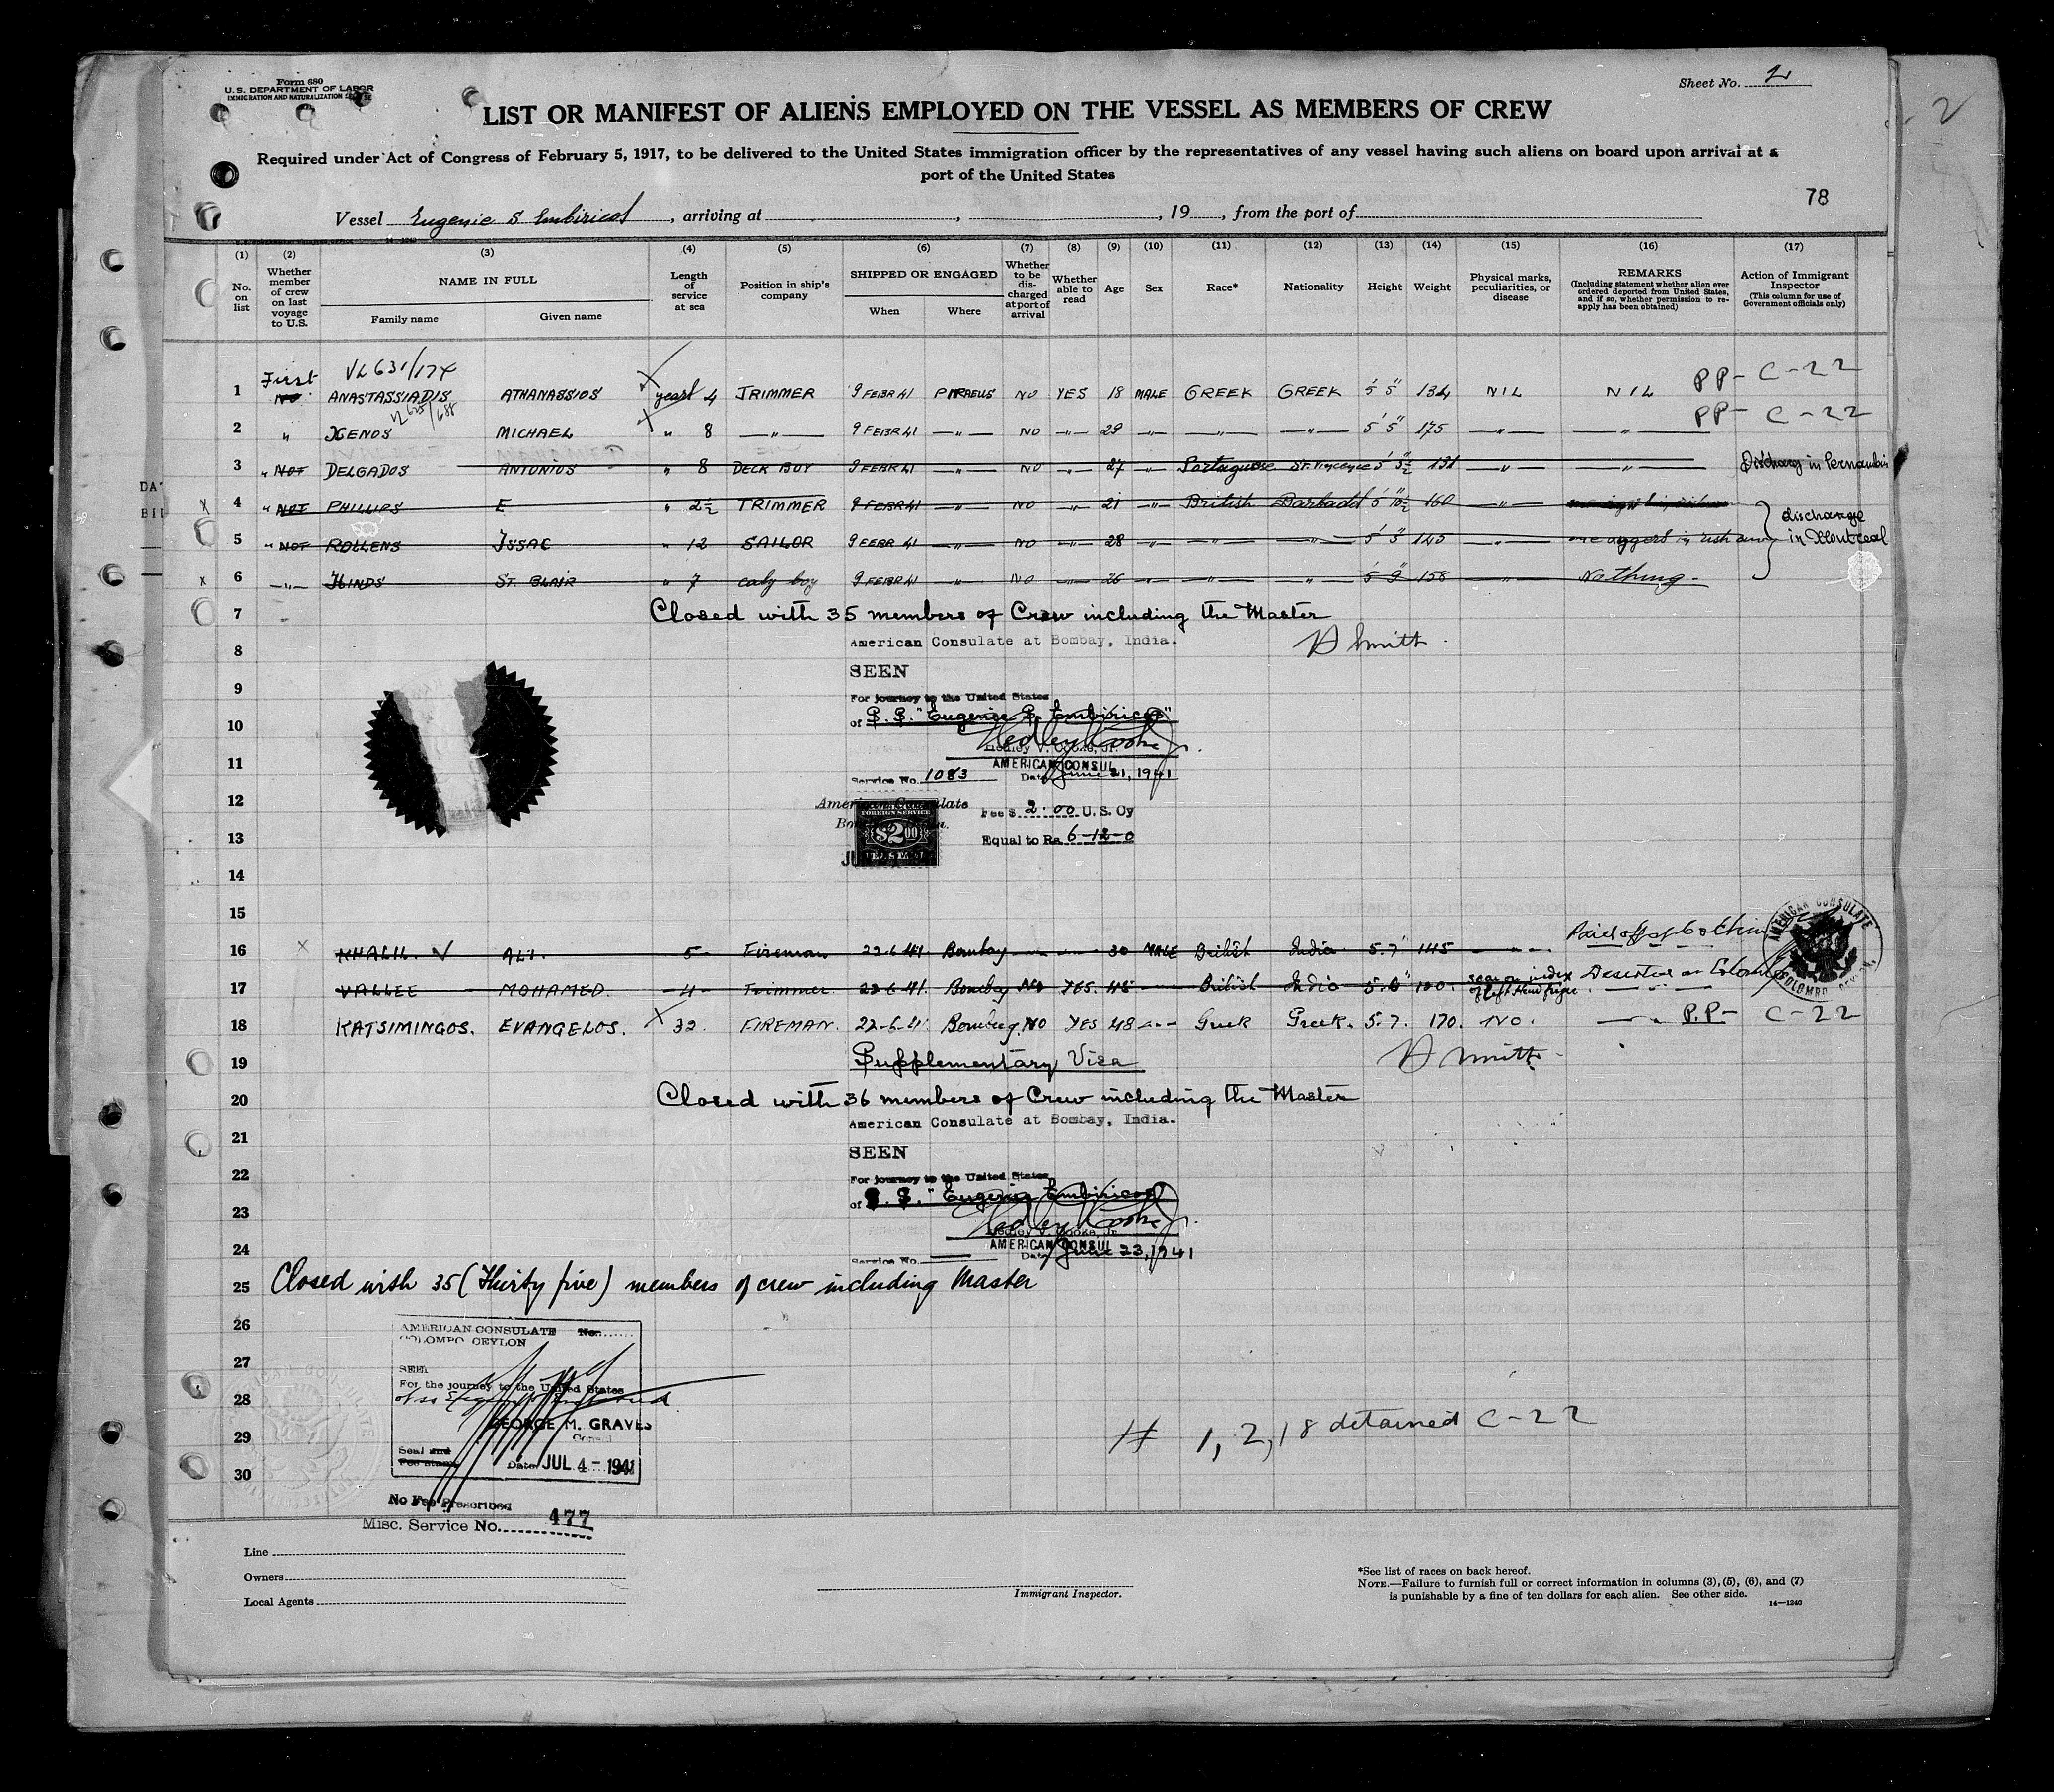 Form 680
U.S. DEPARTMENT OF LABOR
IMMIGRATION AND NATURALIZATION SERVICE
Sheet No. 2
2
LIST OR MANIFEST OF ALIENS EMPLOYED ON THE VESSEL AS MEMBERS OF CREW
Required under Act of Congress of February 5, 1917, to be delivered to the United States immigration officer by the representatives of any vessel having such aliens on board upon arrival at a
port of the United States
78
Vessel Eugenie S Embiricos, arriving at , , 19 , from the port of
(1) (2) (3) (4) (5) (6) (7) (8) (9) (10) (11) (12) (13) (14) (15) (16) (17)
No. on list
Whether member of crew on last voyage to U.S.
NAME IN FULL
Family name
Given name
Length of service at sea
Position in ship's company
SHIPPED OR ENGAGED
When
Where
Whether to be discharged at port of arrival
Whether able to read
Age
Sex
Race*
Nationality
Height
Weight
Physical marks, peculiarities, or disease
REMARKS
(Including statement whether alien ever ordered deported from United States, and if so, whether permission to reapply has been obtained)
Action of Immigrant Inspector
(This column for use of Government officials only)
VL 631/174
1 First NO ANASTASSIADIS ATHANASSIOS years 4 TRIMMER 9 FEBR 41 PIRAEUS NO YES 18 MALE GREEK GREEK 5' 5" 134 NIL NIL PP- C-22
2 " XENOS MICHAEL " 8 —"— 9 FEBR 41 —"— NO —"— 29 —"— —"— —"— 5' 5" 175 —"— —"— PP- C-22
3 " NOT DELGADOS ANTONIOS " 8 DECK BOY 9 FEBR 41 —"— NO —"— 27 —"— Portuguese St. Vincence 5' 5½ 131 —"— —"— Discharg in Pernambuco
4 " NOT PHILLIPS E " 2½ TRIMMER 9 FEBR 41 —"— NO —"— 21 —"— British Barbados 5' 10½ 160 —"—
5 " NOT ROLLENS ISSAC " 12 SAILOR 9 FEBR 41 —"— NO —"— 28 —"— —"— —"— 5' 5" 145 —"—
discharge
in Montreal
6 —"— HINDS ST. BLAIR " 7 9 FEBR 41 —"— NO —"— 26 —"— —"— —"— 5' 9" 158 —"— Nothing-
7 Closed with 35 members of Crew including the Master
8 American Consulate at Bombay, India.
SEEN
9 For journey to the United States
10 of S.S. "Eugenie S. Embiricos"
Hedley V. Cooke, Jr.
11 AMERICAN CONSUL
Service No. 1083 Date June 21, 1941
12 American Consulate
Bombay, India.
FOREIGN SERVICE
$2.00
Fee $ 2.00 U. S. Cy
13 Equal to Rs. 6-12-0
14
15
16 KHALIL. ALI. 5- Fireman 22-6-41. Bombay 30 MALE British India 5.7" 145 Paid off at Cochin
17 VALLEE MOHAMED. 4- Trimmer. 22-6-41. Bombay No YES. 45 British India 5.6" 120. scar on index of left hand finger. Desertion at Colombo
AMERICAN CONSULATE
COLOMBO, CEYLON.
18 KATSIMINGOS. EVANGELOS. 32. FIREMAN. 22-6-41. Bombay. NO YES 48 Greek Greek. 5.7. 170. NO. —"— P.P- C-22
19 Supplementary Visa
20 Closed with 36 members of Crew including the Master
21 American Consulate at Bombay, India.
SEEN
22 For journey to the United States
of S.S. "Eugenie Embiricos"
23 Hedley V. Cooke, Jr.
24 AMERICAN CONSUL
Service No. Date June 23, 1941
25 Closed with 35 (Thirty five) members of crew including Master
26 AMERICAN CONSULATE No.
COLOMBO CEYLON
27 SEEN
For the journey to the United States
28
GEORGE M. GRAVES
29 Consul
Seal and
Fee stamp Date JUL 4 - 1941
1, 2, 18 detained C-22
30
No Fee Prescribed
Misc. Service No. 477
Line
Owners
Local Agents
Immigrant Inspector.
*See list of races on back hereof.
NOTE.—Failure to furnish full or correct information in columns (3), (5), (6), and (7)
is punishable by a fine of ten dollars for each alien. See other side.
14—1240